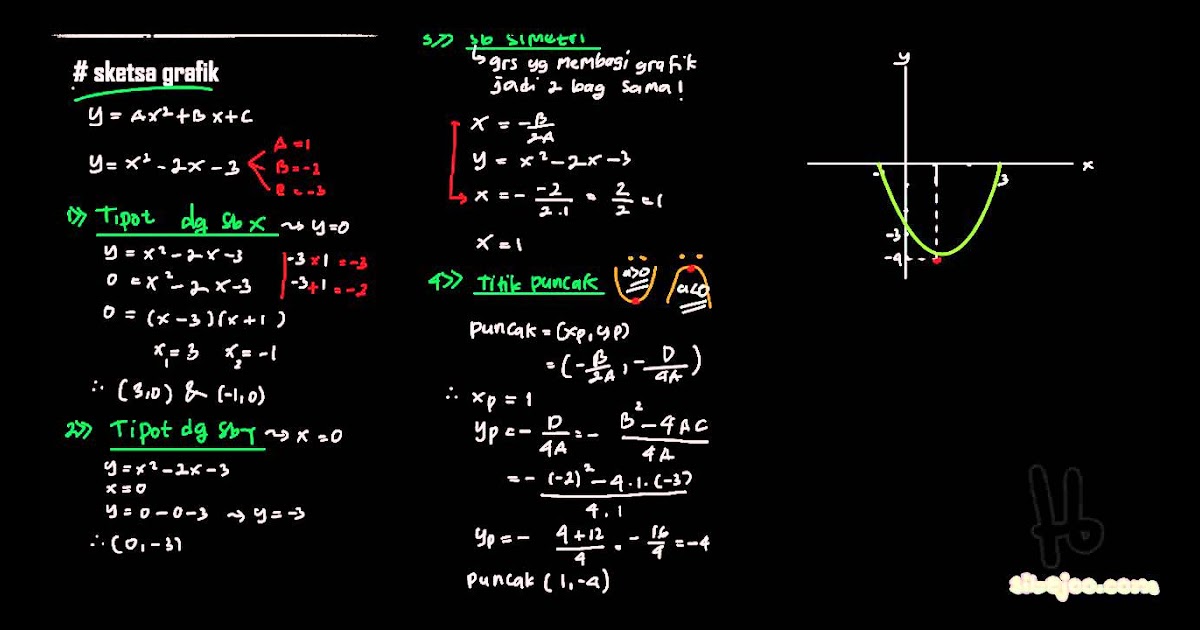 # sketsa grafik
y = Ax² + Bx + C
y = x² - 2x - 3
A = 1
B = -2
C = -3
1)) Tipot dg sb x ~> y=0
y = x² - 2x - 3
0 = x² - 2x - 3
-3 × 1 = -3
-3 + 1 = -2
0 = (x - 3)(x + 1)
x₁ = 3 x₂ = -1
∴ (3,0) & (-1,0)
2)) Tipot dg sb Y ~> x = 0
y = x² - 2x - 3
x = 0
y = 0 - 0 - 3 → y = -3
∴ (0, -3)
3)) sb simetri
grs yg membagi grafik
jadi 2 bag sama!
x = -B/2A
y = x² - 2x - 3
x = - -2/2.1 = 2/2 = 1
x = 1
4)) Titik puncak
a>0
a<0
puncak = (xp, yp)
= (-B/2A, -D/4A)
∴ xp = 1
yp = - D/4A = - B² - 4AC/4A
= - (-2)² - 4.1.(-3)/4.1
yp = - 4+12/4 = - 16/4 = -4
puncak (1, -4)
y
x
3
-3
-4
sibejoo.com